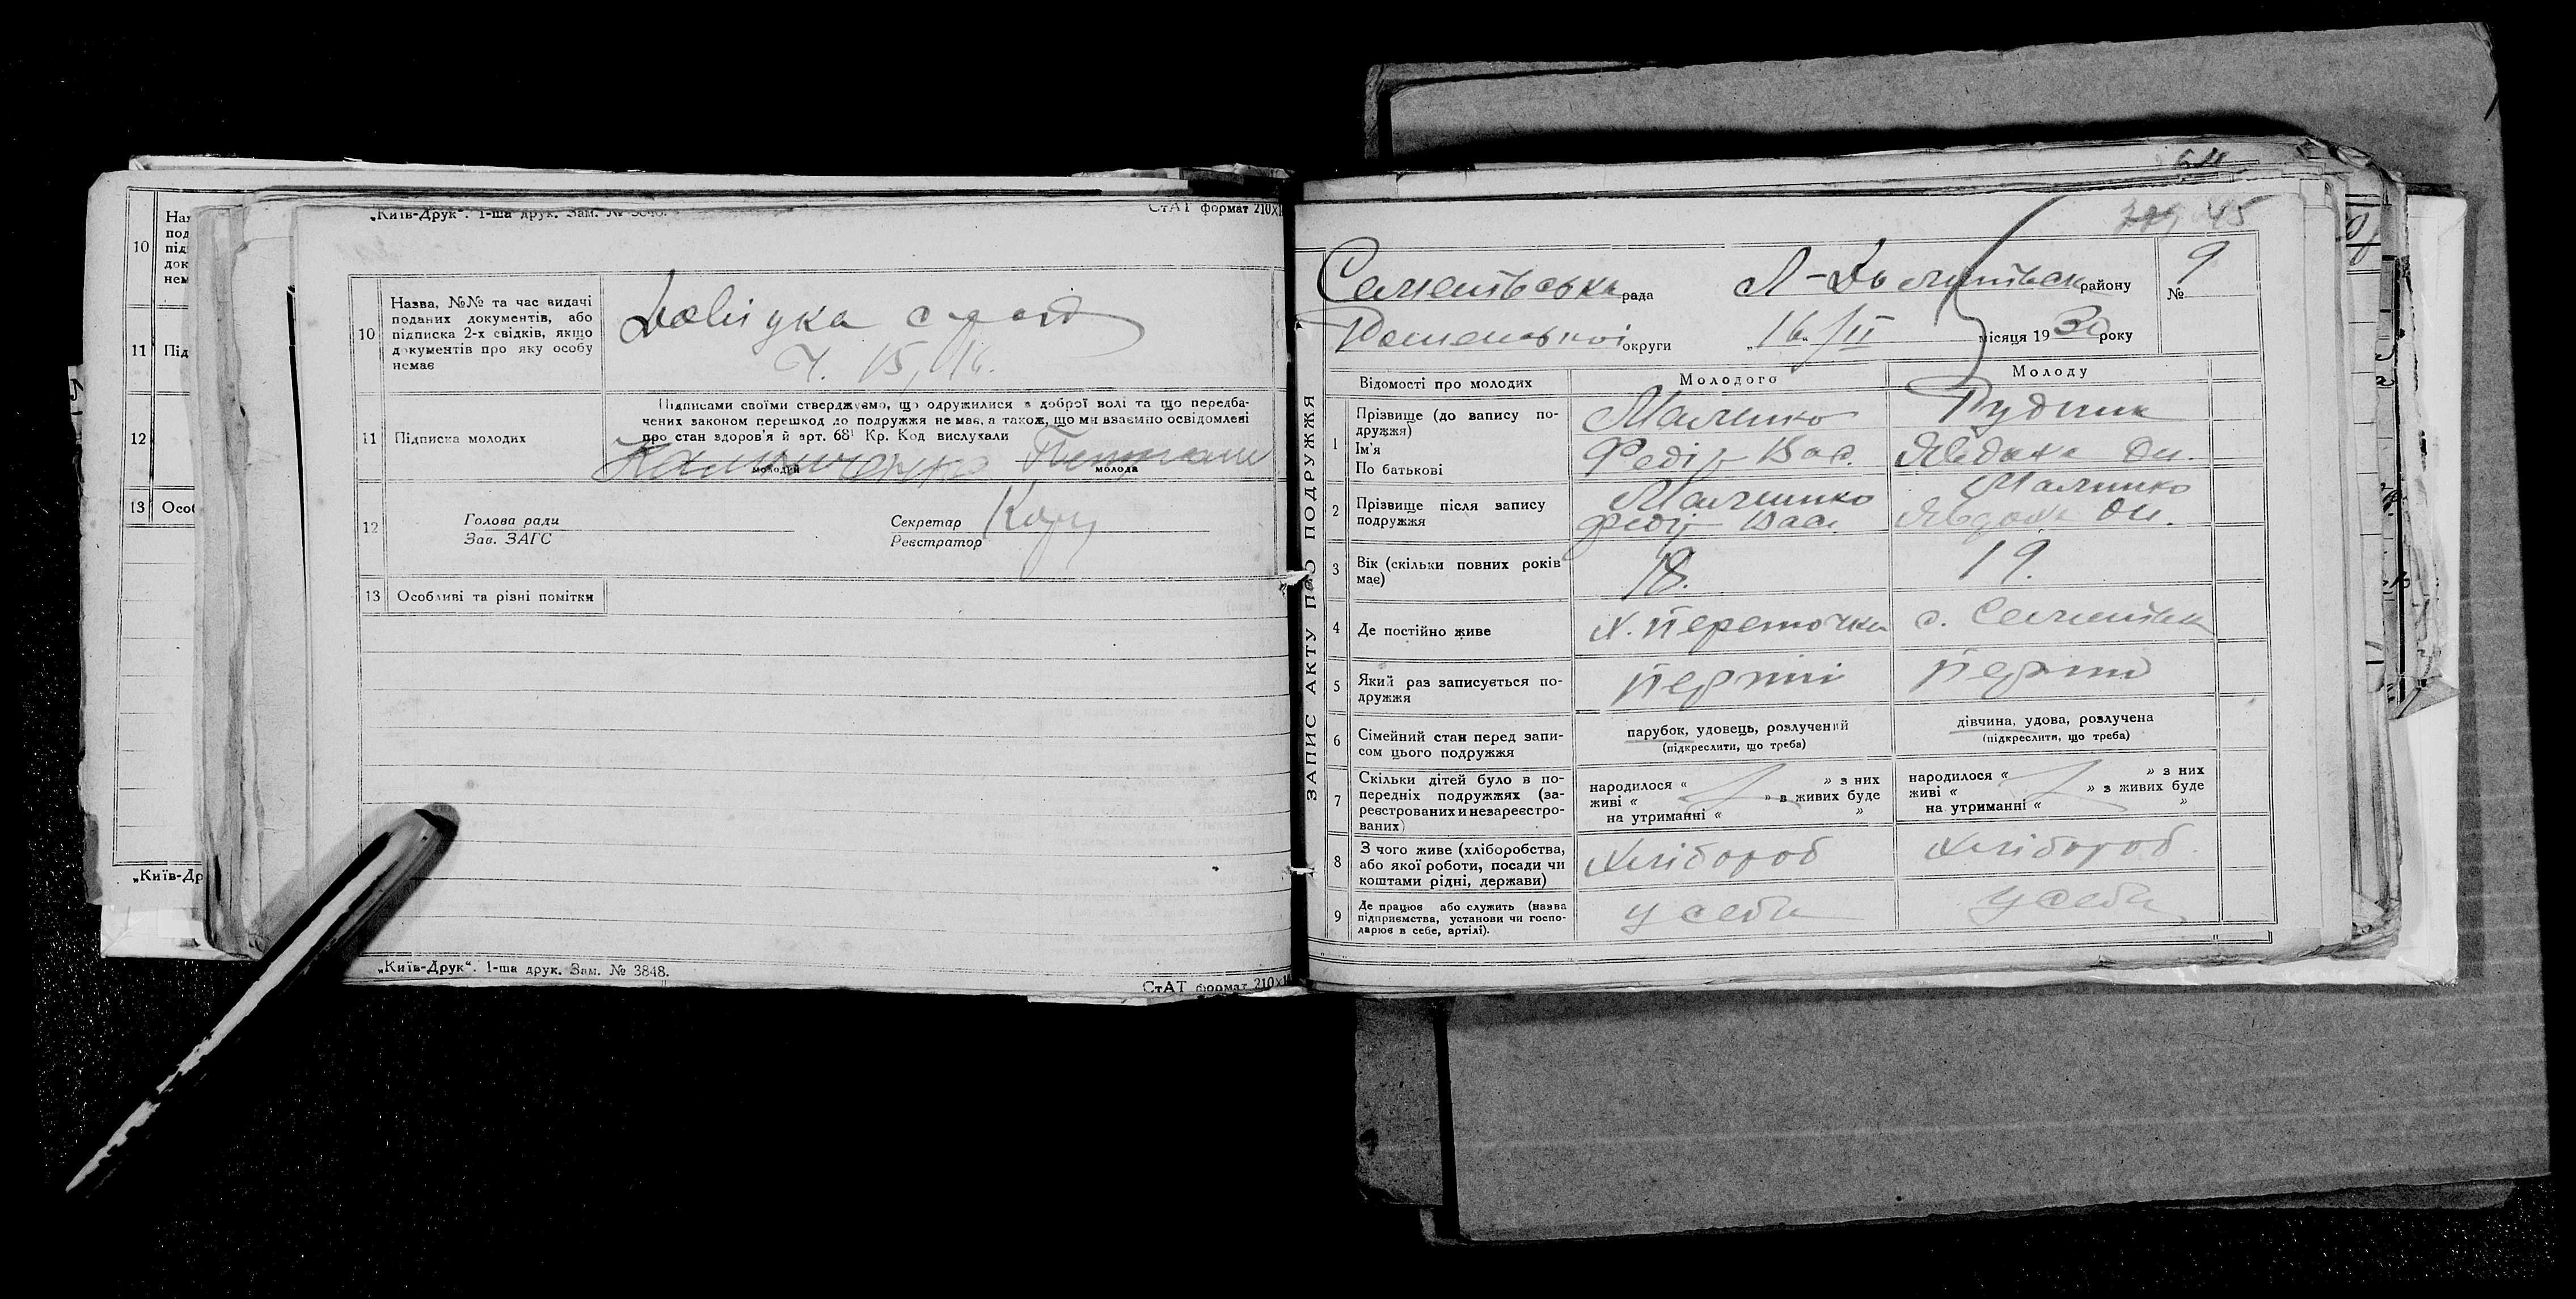 „Київ-Друк“. 1-ша друк. Зам. № 3848.
СтАТ формат 210х1
10
Наз
под
під
док
нем
11 Під
12
13 Особ
„Київ-Др
10
Назва, №№ та час видачі
поданих документів, або
підписка 2-х свідків, якщо
документів про яку особу
немає
Довідка
Ч. 15, 16.
11 Підписка молодих
Підписами своїми стверджуємо, що одружилися з доброї волі та що передба-
чених законом перешкод до подружжя немає, а також, що ми взаємно освідомлені
про стан здоров'я й арт. 68¹ Кр. Код вислухали
молодий
молода
12
Голова ради
Зав. ЗАГС
Секретар
Реєстратор
13 Особливі та різні помітки
„Київ-Друк“. 1-ша друк. Зам. № 3848.
СтАТ формат 210х1
64
45
рада
району
№ 9
Роменської округи „16“ / II місяця 1930 року
ЗАПИС АКТУ ПРО ПОДРУЖЖЯ
Відомості про молодих
Молодого
Молоду
1
Прізвище (до запису по-
дружжя)
Ім'я
По батькові
Малишко
Федір Вас.
Рудник
Явдоха Ди.
2
Прізвище після запису
подружжя
Малишко
Федір Вас.
Малишко
Явдоха Ди.
3
Вік (скільки повних років
має)
18.
19.
4 Де постійно живе
х. Переточка
с.
5
Який раз записується по-
дружжя
перший
перший
6
Сімейний стан перед запи-
сом цього подружжя
парубок, удовець, розлучений
(підкреслити, що треба)
дівчина, удова, розлучена
(підкреслити, що треба)
7
Скільки дітей було в по-
передніх подружжях (за-
реєстрованих и незареєстро-
ваних)
народилося “ ” з них
живі “ ” в живих буде
на утриманні “ ”
народилося “ ” з них
живі “ ” з живих буде
на утриманні “ ”
8
З чого живе (хліборобства,
або якої роботи, посади чи
коштами рідні, держави)
хлібороб
хлібороб
9
Де працює або служить (назва
підприємства, установи чи госпо-
дарює в себе, артілі).
у себе
у себе